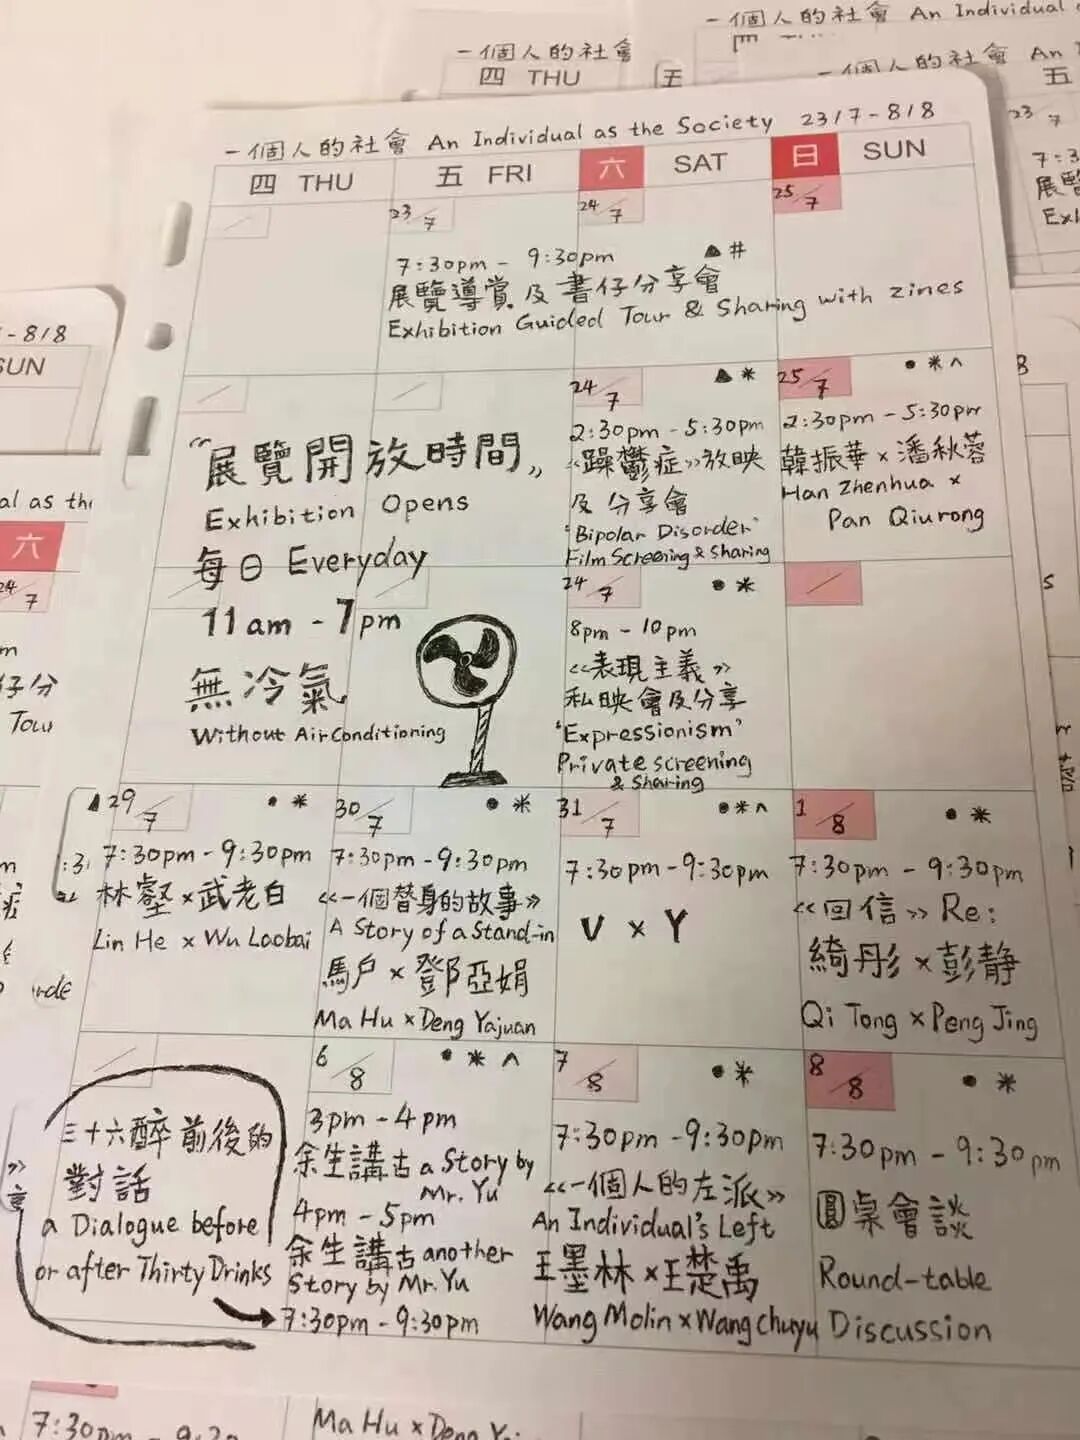 一個人的社會 An Individual as the Society 23/7 - 8/8
四 THU 五 FRI 六 SAT 日 SUN
23/7 24/7 25/7
7:30pm - 9:30pm ▲ #
展覽導賞及書仔分享會
Exhibition Guided Tour & Sharing with zines
“展覽開放時間”
Exhibition Opens
每日 Everyday
11am - 7pm
無冷氣
Without Air Conditioning
24/7 ▲ *
2:30pm - 5:30pm
《躁鬱症》放映
及分享會
'Bipolar Disorder'
Film Screening & Sharing
25/7 ● * ^
2:30pm - 5:30pm
韓振華 × 潘秋蓉
Han Zhenhua ×
Pan Qiurong
24/7 ● *
8pm - 10pm
《表現主義》
私映會及分享
'Expressionism'
Private screening
& Sharing
▲ 29/7 ● *
7:30pm - 9:30pm
林壑 × 武老白
Lin He × Wu Laobai
30/7 ● *
7:30pm - 9:30pm
《一個替身的故事》
A Story of a Stand-in
馬戶 × 鄧亞娟
Ma Hu × Deng Yajuan
31/7 ● * ^
7:30pm - 9:30pm
V × Y
1/8 ● *
7:30pm - 9:30pm
《回信》 Re:
綺彤 × 彭靜
Qi Tong × Peng Jing
三十六醉前後的
對話
a Dialogue before
or after Thirty Drinks
6/8 ● * ^
3pm - 4pm
余生講古 a Story by
Mr. Yu
4pm - 5pm
余生講古 another
Story by Mr. Yu
7:30pm - 9:30pm
7/8 ● *
7:30pm - 9:30pm
《一個人的左派》
An Individual's Left
王墨林 × 王楚禹
Wang Molin × Wang chuyu
8/8 ● *
7:30pm - 9:30pm
圓桌會談
Round-table
Discussion
一個人的社會
四 THU
五
一個人的社會 An Individual
一個人的社會 An
五
23/7
展覽
- 8/8
SUN
al as the
六
24/7
仔分
Tour
7:30pm
Ma Hu × Deng Yajuan